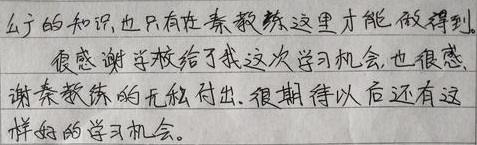 么于的知识,也只有在秦教练这里才能做得到。
很感谢学校给了我这次学习机会,也很感
谢秦教练的无私付出.很期待以后还有这
样好的学习机会。